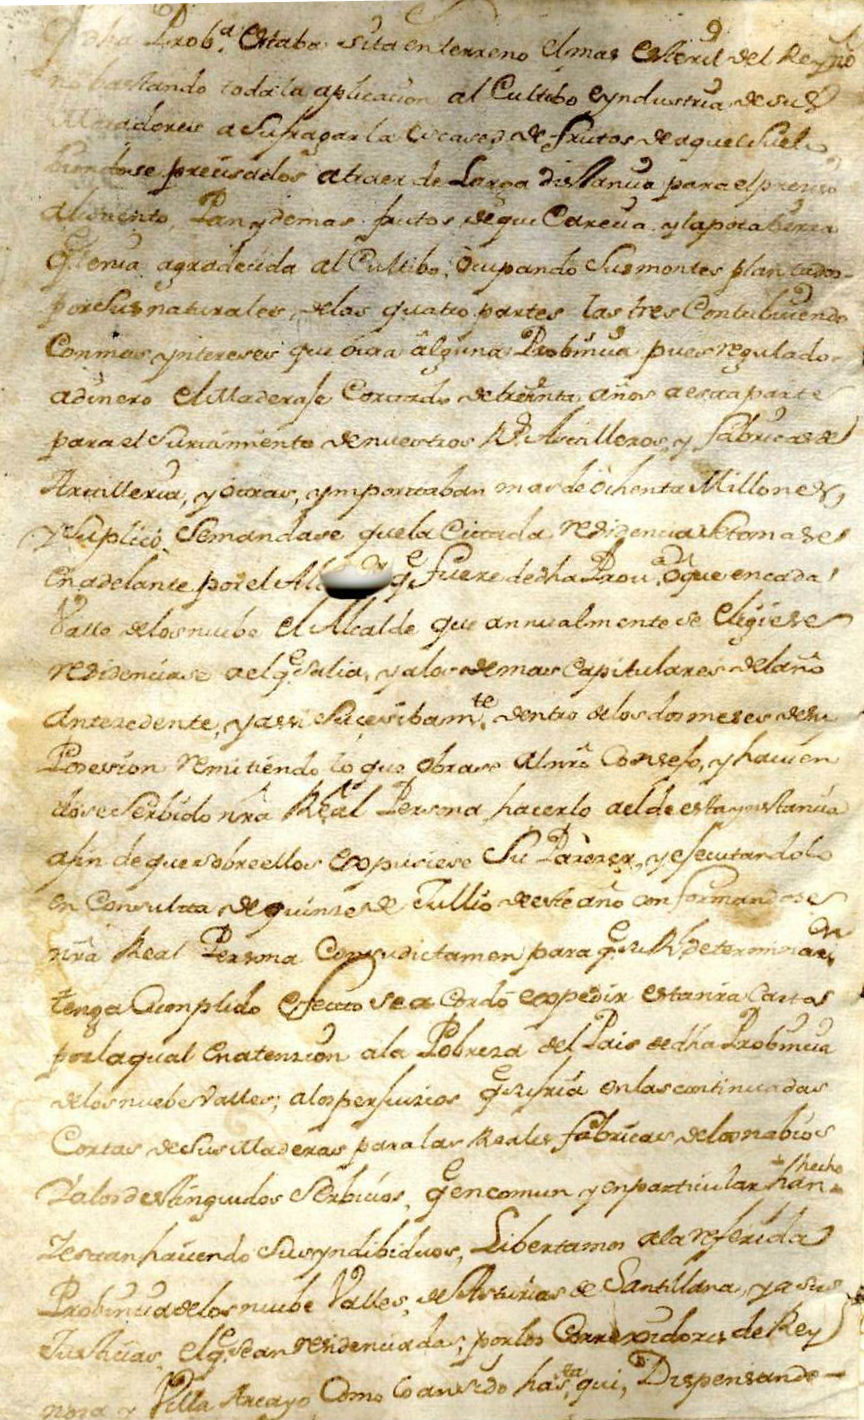 dha Probª. estaba sita en terreno el mas esteril del Reyno
no bastando toda la aplicacion al Cultibo e yndustria de sus
Moradores a sufragar la escasez de frutos de aquel Suelo
biendose precisados atraer de Larga distancia para el preciso
alimento, Pan y demas frutos de que Carecia y la poca tierra
qe tenia agradecida al Cultibo, ocupando Sus montes plantados
por Sus naturales, de las quatro partes las tres Contribuiendo
Con mas yntereses que otra alguna Probincia pues regulado
a dinero el Maderaje Cortado de treinta años a esta parte
para el Surtimiento de nuestros Rs Astilleros, y fabricas de
Artilleria, y otras, ymportaban mas de ochenta Millones,
y Suplicó Se mandase que la Citada residencia Se tomase
en adelante por el Al qe fuere de dha Prov.ª o que en cada
Valle de los nuebe el Alcalde que annualmente se eligiese
residenciase a el qe Salia, y a los demas Capitulares del año
Antezedente, y assi Sucesibamte. dentro de los dos meses de su
Posesion remitiendo lo que obrase al nrõ Consejo, y havien
dose Serbido nrã Real Persona hacerlo a el de esta ynstancia
a fin de que sobre ellos expusiese Su Parezer, y ejecutandolo
en Consulta de quinze de Jullio de este año conformandose
nrã Real Persona Con su dictamen para qe su Rl determinazn
tenga Cumplido efecto se acordó expedir esta nrã Carta
por la qual en atenzion a la Pobreza del Pais de dha Probincia
de los nuebe Valles; a los perjuicios qe sufria en las continuadas
Cortas de Sus Maderas para las Reales fabricas de los nabios
Y a los destinguidos Serbicios, qe en comun y en particular han hecho
Y estan haciendo Sus yndibiduos, Libertamos a la referida
Probincia de los nuebe Valles, de Asturias de Santillana, y a sus
Justicias, el qe sean residenciadas, por los Correxidores de Rey
nosa y Villa Arcayo Como lo an sido hasta qui, Dispensando